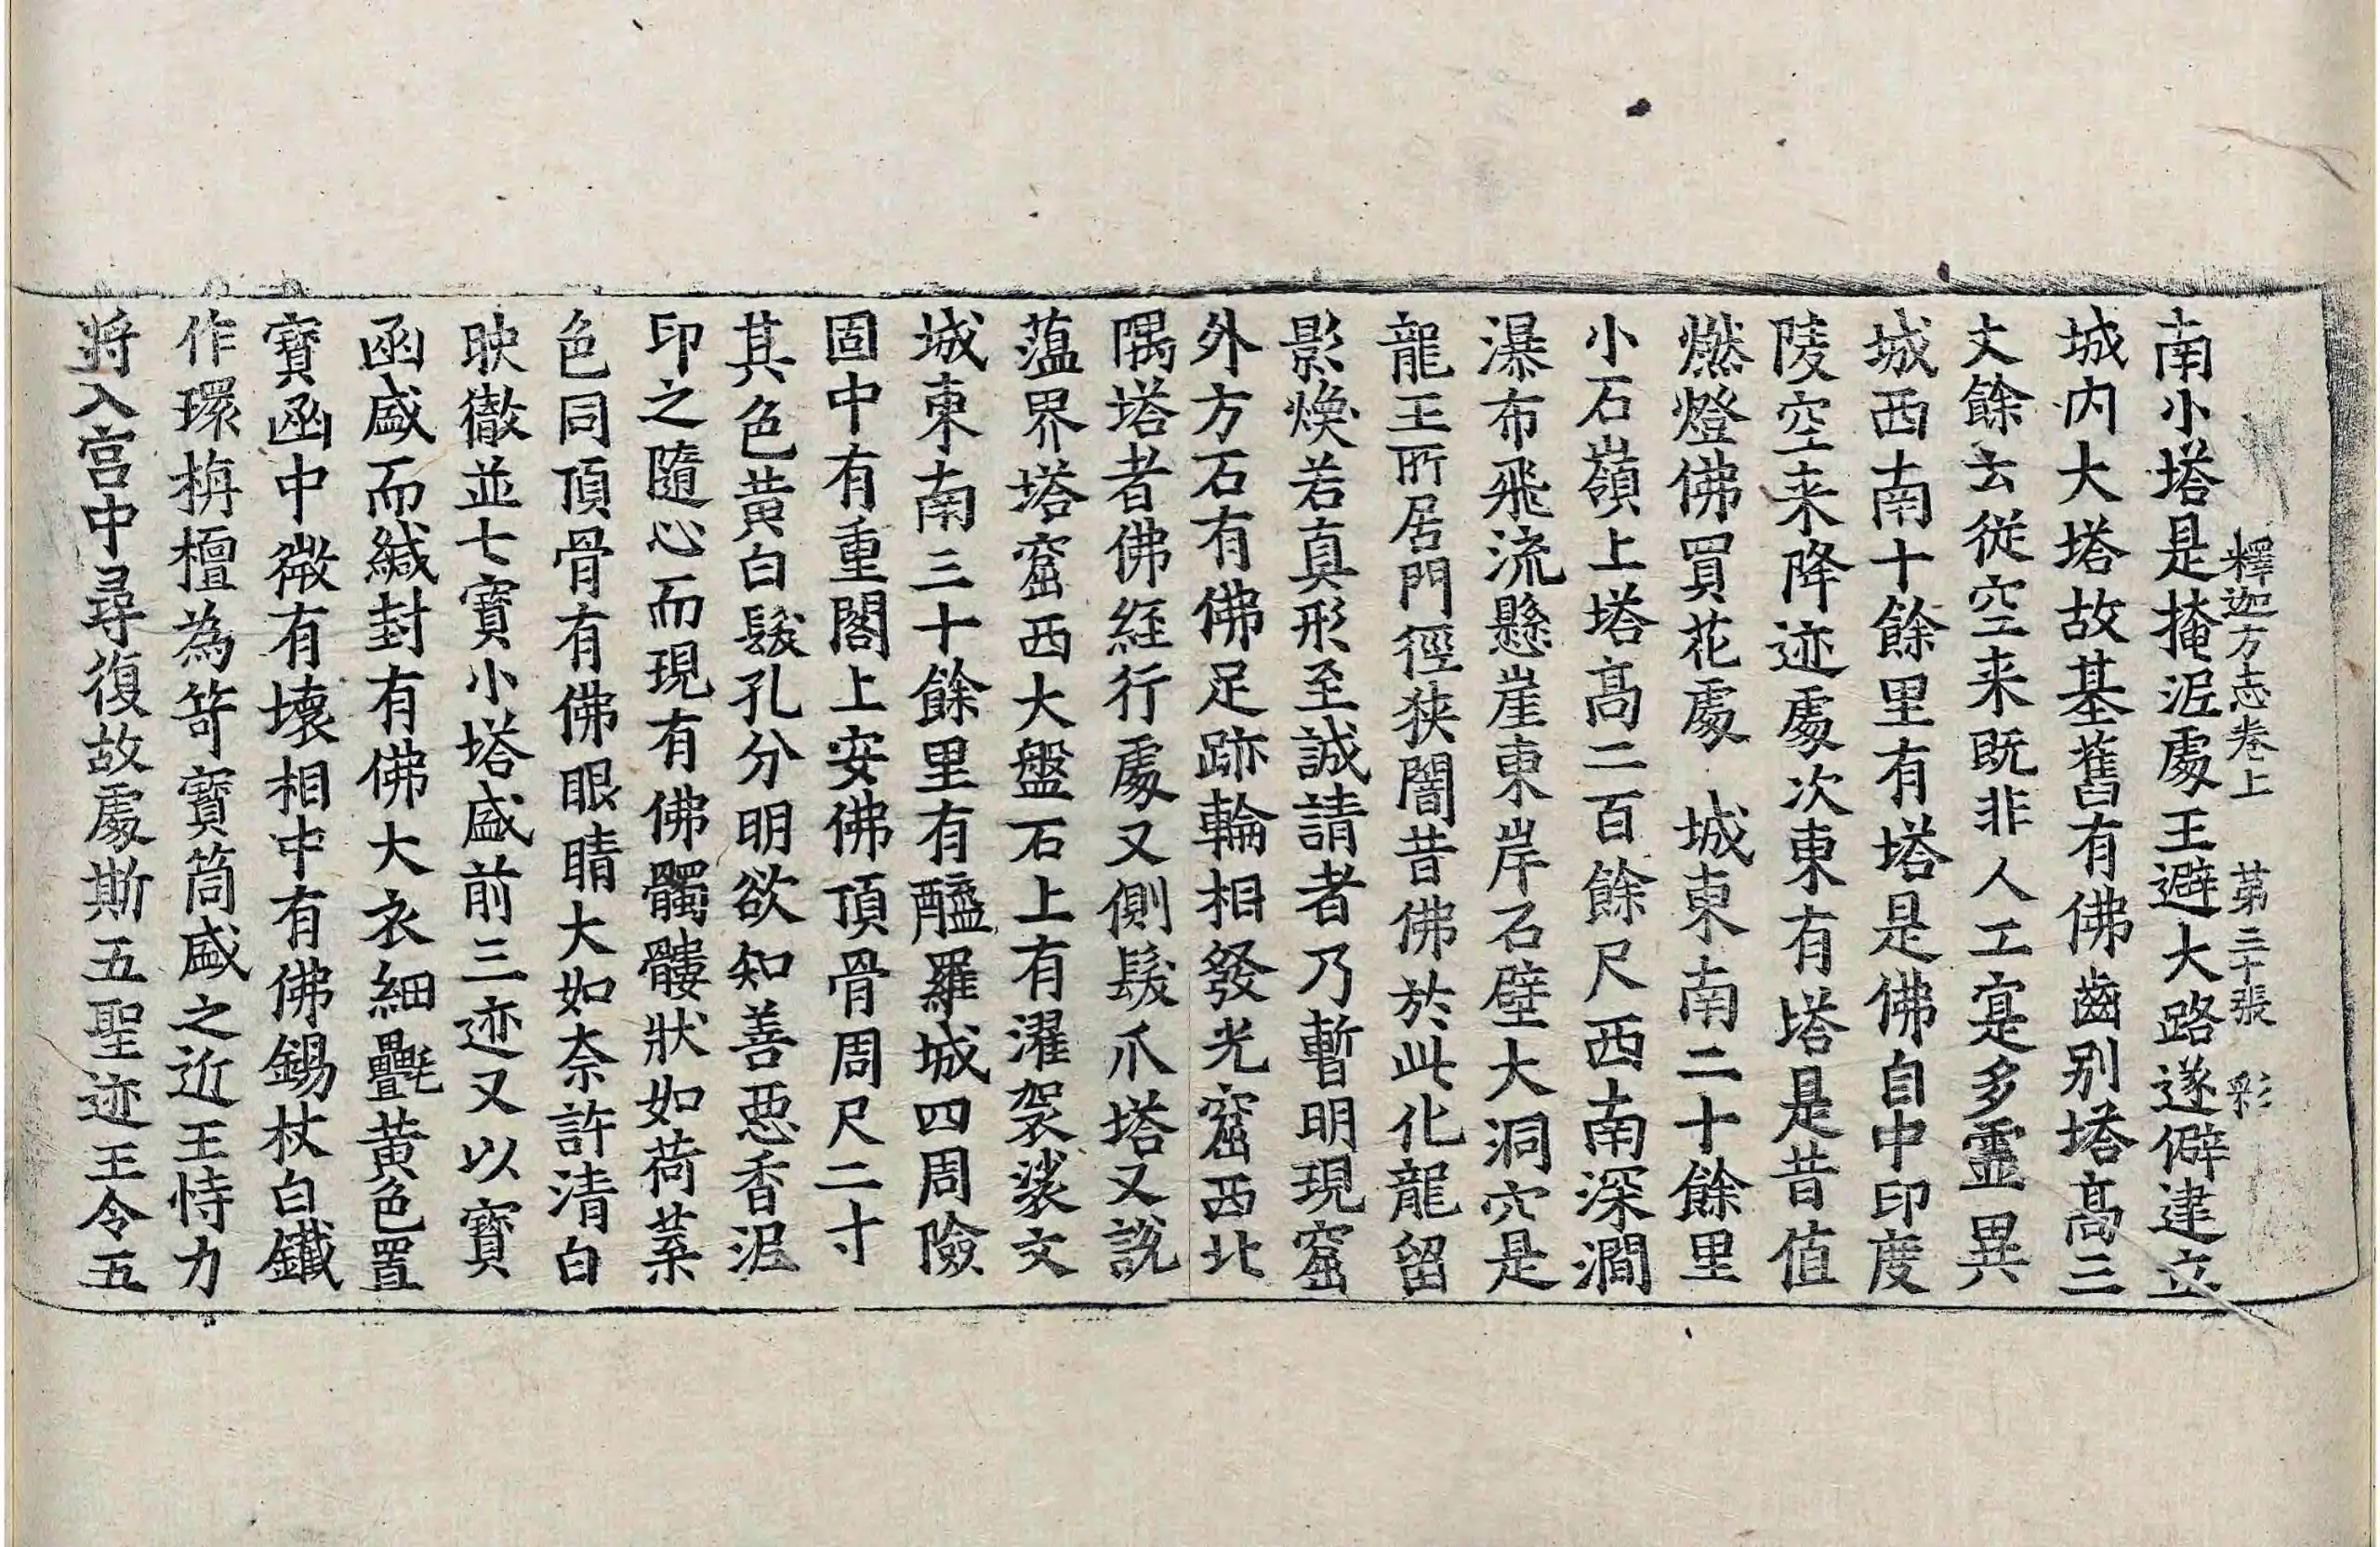 釋迦方志卷上　第三十張　彩
南小塔是掩泥處王避大路遂僻建立
城内大塔故基舊有佛齒别塔髙三
丈餘云從空来既非人工寔多靈異
城西南十餘里有塔是佛自中印度
陵空来降迹處次東有塔是昔值
燃燈佛買花處　城東南二十餘里
小石嶺上塔髙二百餘尺西南深澗
瀑布飛流懸崖東岸石壁大洞穴是
龍王所居門徑狹闇昔佛於此化龍留
影煥若真形至誠請者乃暫明現窟
外方石有佛足跡輪相發光窟西北
隅塔者佛經行處又側髮爪塔又說
薀界塔窟西大盤石上有濯袈裟文
城東南三十餘里有醯羅城四周險
固中有重閣上安佛頂骨周尺二寸
其色黄白髮孔分明欲知善惡香泥
印之隨心而現有佛髑髏狀如荷葉
色同頂骨有佛眼睛大如柰許清白
映徹並七寶小塔盛前三迹又以寶
函盛而緘封有佛大衣細㲲黄色置
寶函中微有壞相中有佛錫杖白鐵
作環栴檀為笴寶筒盛之近王恃力
將入宫中尋復故處斯五聖迹王令五